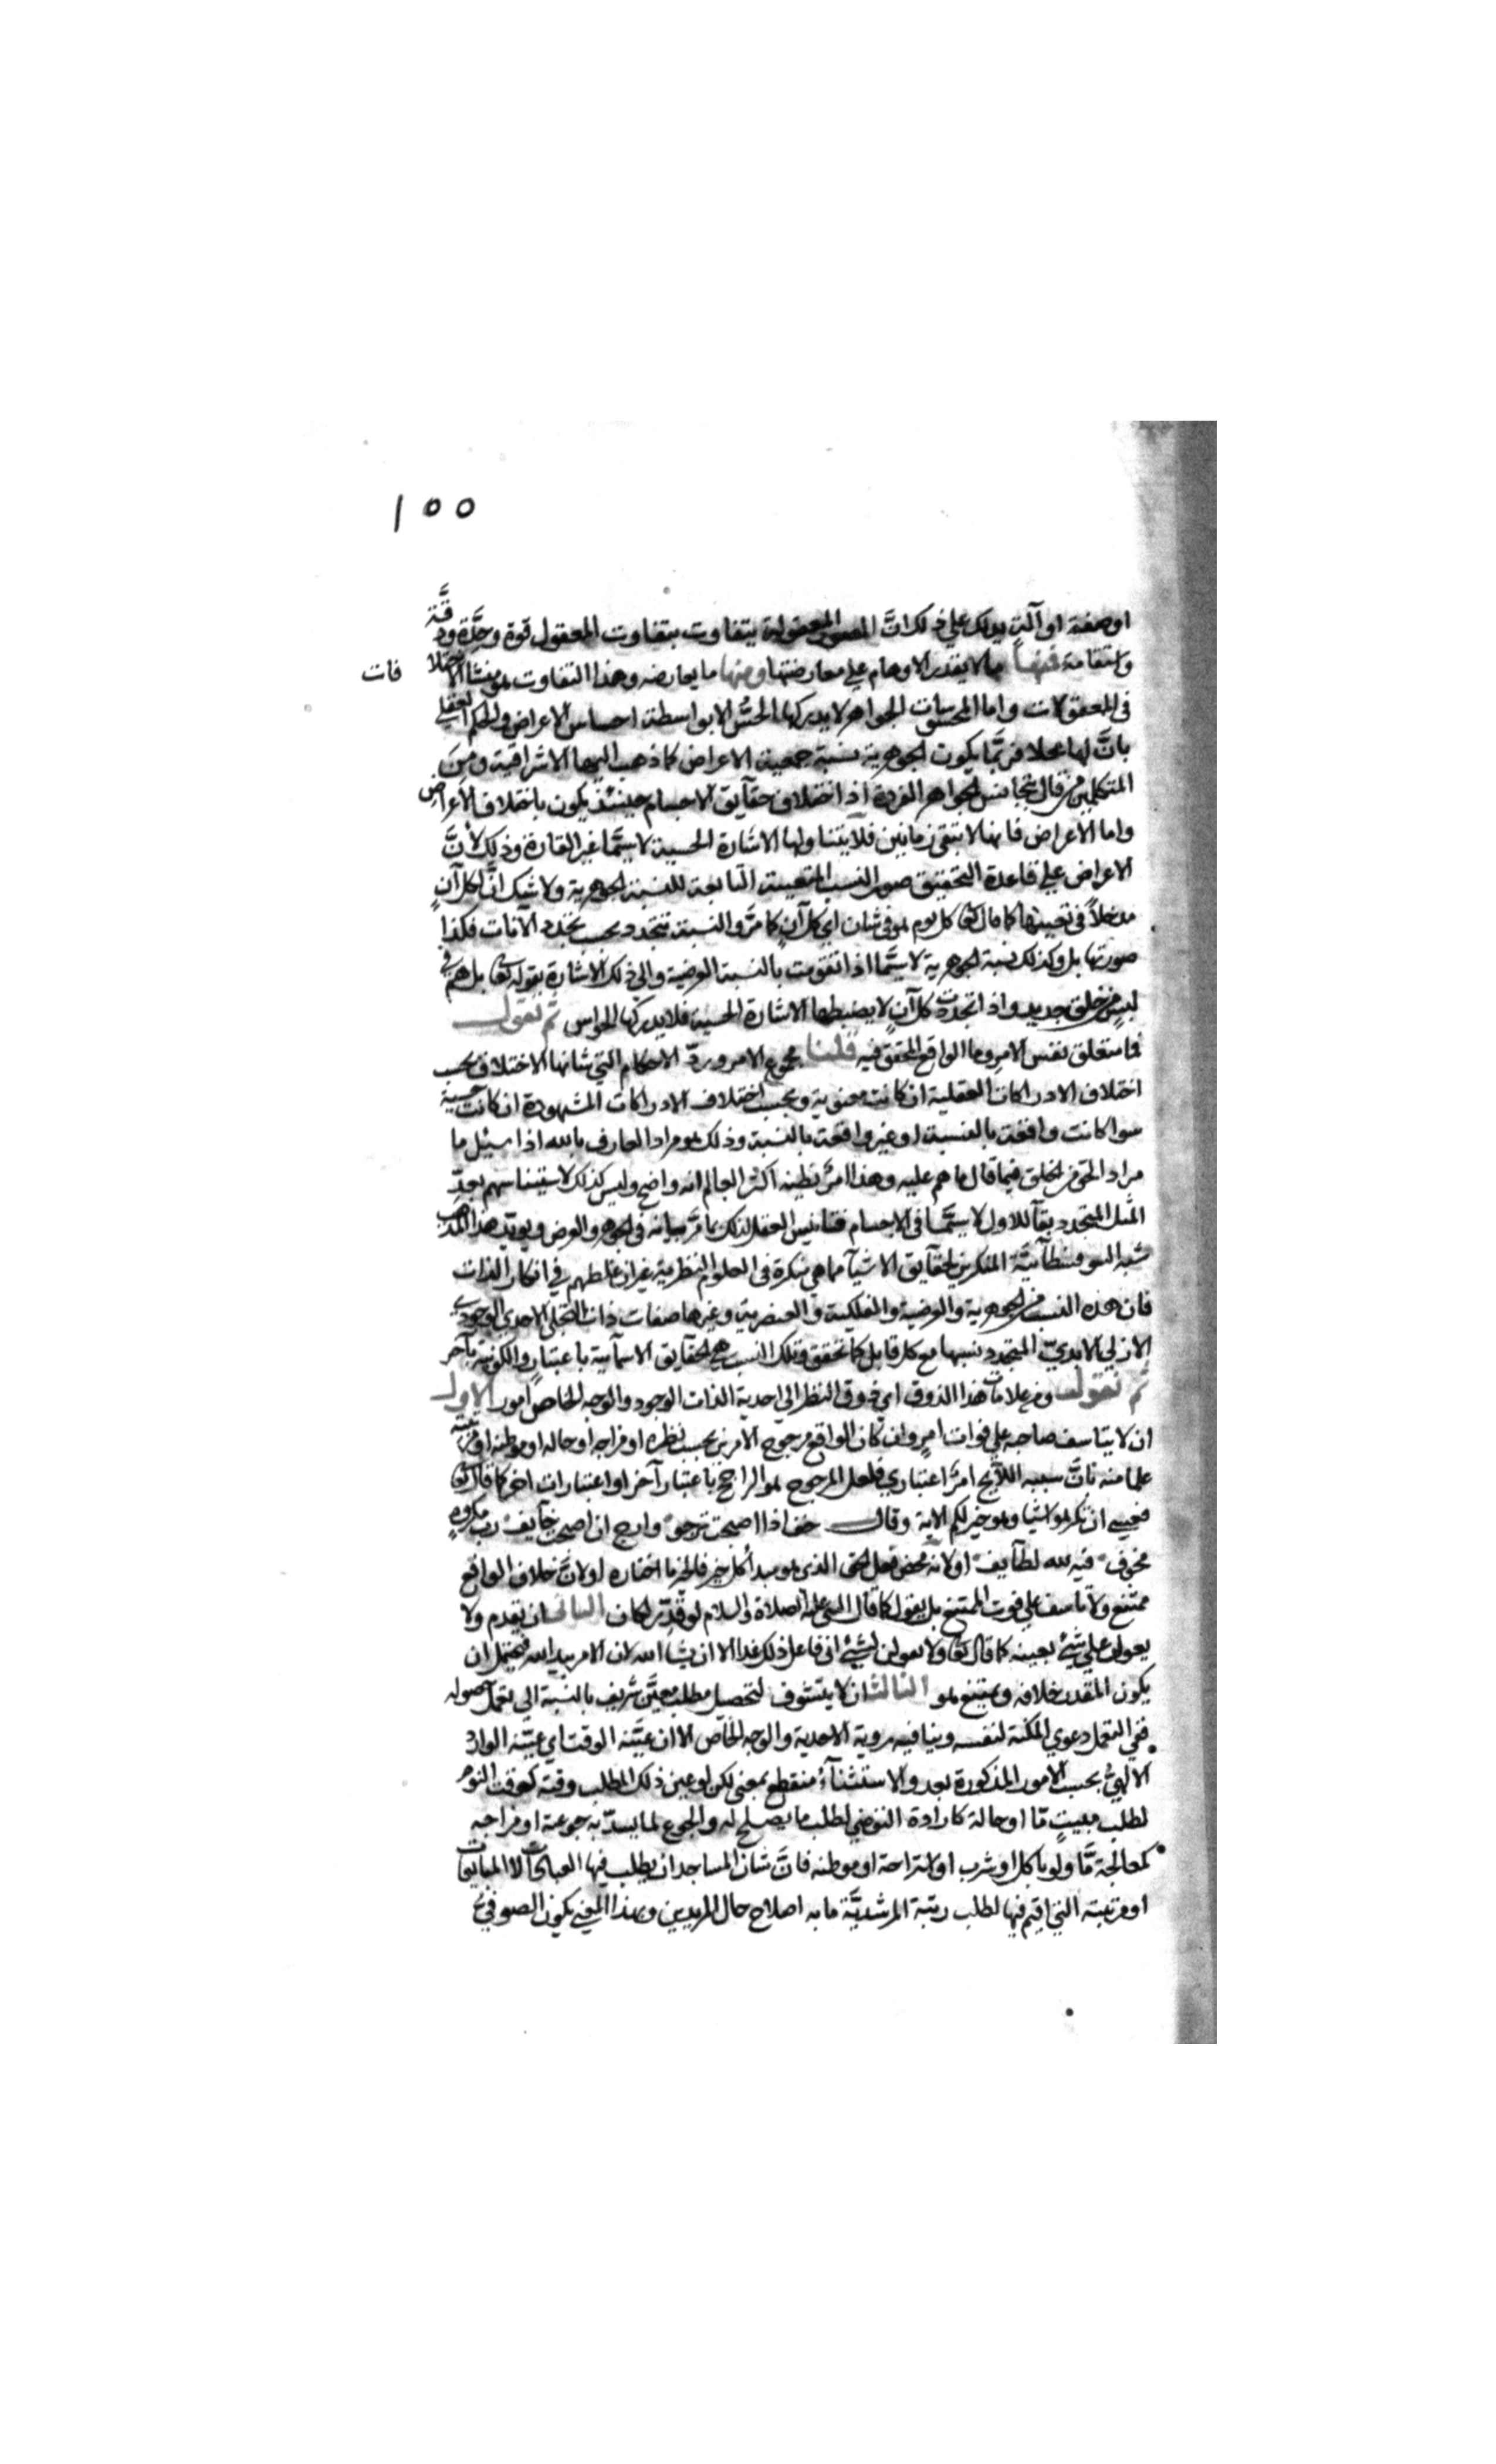 ١٥٥
او صفة او آلة يدلك على ذلك ان الصور المعقولة يتفاوت بتفاوت المعقول قوة وحدّة ودقّة
واستقامة فمنها ما لا يقدر الاوهام على معارضتها ومنها ما يعارضه وهذا التفاوت هو منشا الاختلا فات
فى المعقولات واما المحسوسات الجواهر لا يدركها الحسّ الا بواسطة احساس الاعراض والحكم العقلى
بانّ لها محلا فربّما يكون الجوهرية نسبة جمعية الاعراض كما ذهب اليها الاشراقية ومن
المتكلمين من قال بتجانس الجواهر الفردة اذ اختلاف حقايق الاجسام حينئذ يكون باختلاف الاعراض
واما الاعراض فانها لا تبقى زمانين فلا يتناولها الاشارة الحسية لا سيّما غير القارة وذلك لانّ
الاعراض على قاعدة التحقيق صور النسب المتعينة التابعة للنسبة الجوهرية ولا شك انّ لكل آنٍ
مدخلاً فى تعينها كما قال تعا كل يوم هو فى شان اى كل آنٍ كما مرّ والنسبة تتجدد بحسب تجدد الآنات فكذا
صورتها بل وكذلك نسبة الجوهرية لا سيّما اذا تقومت بالنسبة العرضية والى ذلك الاشارة بقوله تعا بل هم فى
لبس من خلق جديد واذا تجددت كل آنٍ لا يضبطها الاشارة الحسية فلا يدركها الحواس ثم نقول
فما متعلق نفس الامر وما الواقع المحقق فيه قلنا مجموع الامر وردّ الاحكام التى شانها الاختلاف بحسب
اختلاف الادراكات العقلية ان كانت معنوية وبحسب اختلاف الادراكات المشهودة ان كانت حسية
سوا كانت واقعة بالنسبة او غير واقعة بالنسبة وذلك هو مراد العارف بالله اذا سئل ما
مراد الحق من الخلق فيما قال ما هم عليه وهذا امرٌ يظنه اكثر العالم انه واضح وليس كذلك لاستيناسهم بعدّ
المثل المتجدد بقآ للاول لا سيّما فى الاجسام فتانيس العقل لذلك ما مرّ بيانه فى الجوهر والعرض ويويّد هذا المذهب
شبه السوفسطآئيّة المنكرين لحقآيق الاشيآ مما هى منكرة فى العلوم النظرية غير ان غلطهم فى انكار الذات
فان هذه النسب من الجوهرية والعرضية والفلكية والعنصرية وغيرها صفات ذات التجلى الاحدى الوجودى
الازلى الابدىّ المتجدد نسبها مع كل قابل كما تحقق وتلك النسب هى الحقآيق الاسمآئية باعتبارٍ والكونية بآخر
ثم نقول ومن علامات هذا الذوق اى ذوق النظر الى احدية الذات الوجود والوجه الخاص امور الاول
ان لا يتاسف صاحبه على فوات امرٍ وان كان الواقع مرجوح الامرين بحسب نظره او مزاجه او حاله او موطنه او مرتبته
علما منه بانّ سببه اللآيح امرٌ اعتبارى فلعل المرجوح هو الراجح باعتبار آخر او اعتبارات اخر كما قال تعا
فعسى ان تكرهوا شيا وهو خير لكم الاية وقال خف اذا اصبحت ترجو وارج ان اصبحت خآيف رب مكروهٍ
مخوف فيه لله لطآيف او لانّه محض فعل الحق الذى هو مبدأ كل خير فالخير ما اختاره او لانّ خلاف الواقع
ممتنع ولا تاسف على فوت الممتنع بل يقول كما قال النبى عليه الصلاة والسلام لو قدّر لكان الثانى ان يقدم ولا
يعول على شئ بعينه كما قال تعا ولا تقولن لشئ انى فاعل ذلك غدا الا ان يشآ الله لان الامر بيد الله فيحتمل ان
يكون المقدر خلافه ويمتنع هو الثالث ان لا يتشوف لتحصيل مطلب معيّن شريف بالنسبة الى تعمل حصوله
ففى التعمل دعوى المكنة لنفسه وينافيه روية الاحدية والوجه الخاص الا ان عيّنه الوقت اى عيّنه الوارد
الالهىّ بحسب الامور المذكورة بعد والاستثنآء منقطع بمعنى لكن لو عين ذلك المطلب وقته كوقت النوم
لطلب مبيتٍ مّا او حالة كارادة التوضى لطلب ما يصلح له والجوع لما يسدّ به جوعة او مزاجه
كمعالجة مّا ولو باكل او شرب او استراحة او موطنه فانّ شان المساجد ان يطلب فيها العبادات لا المبايعات
او مرتبته التى اقيم فيها لطلب رتبة المرشديّة ما به اصلاح حال المريدين وبهذا المعنى يكون الصوفى